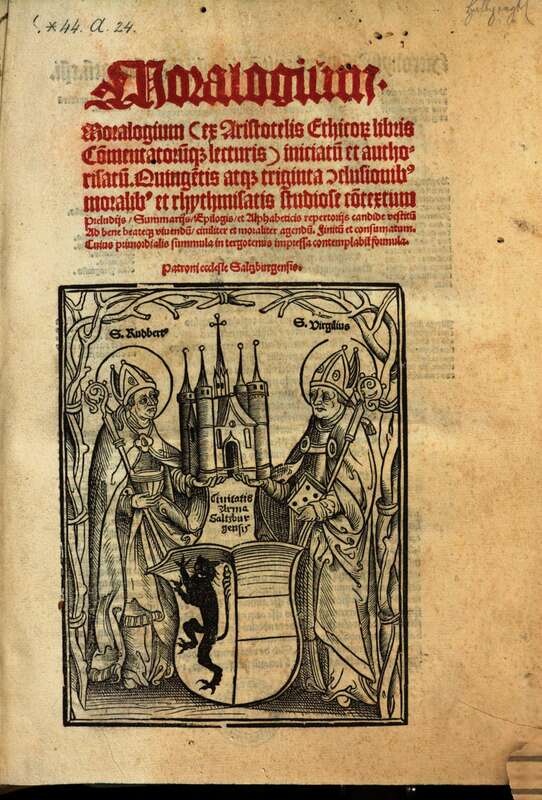 *44. A. 24.
Moralogium.
Moralogium (ex Aristotelis Ethicoꝝ libris
Cōmentatorūqꝫ lecturis) iniciatū et autho-
risatū. Quingētis atqꝫ triginta ↄclusionibꝰ
moralibꝰ et rhythmisatis studiose cōtextum
Preludijs / Summarijs / Epilogis / et Alphabeticis repertorijs candide vestitū
Ad bene beateqꝫ viuendū / ciuiliter et moraliter agendū. Finitū et consumatum.
Cuius primordialis summula in tergotenus impressa contemplabiť formula.
Patroni ecclesie Saltzburgensis.
S. Rudbertꝰ
S. Virgilius
Ciuitatis
Arma
Saltzbur
gensis